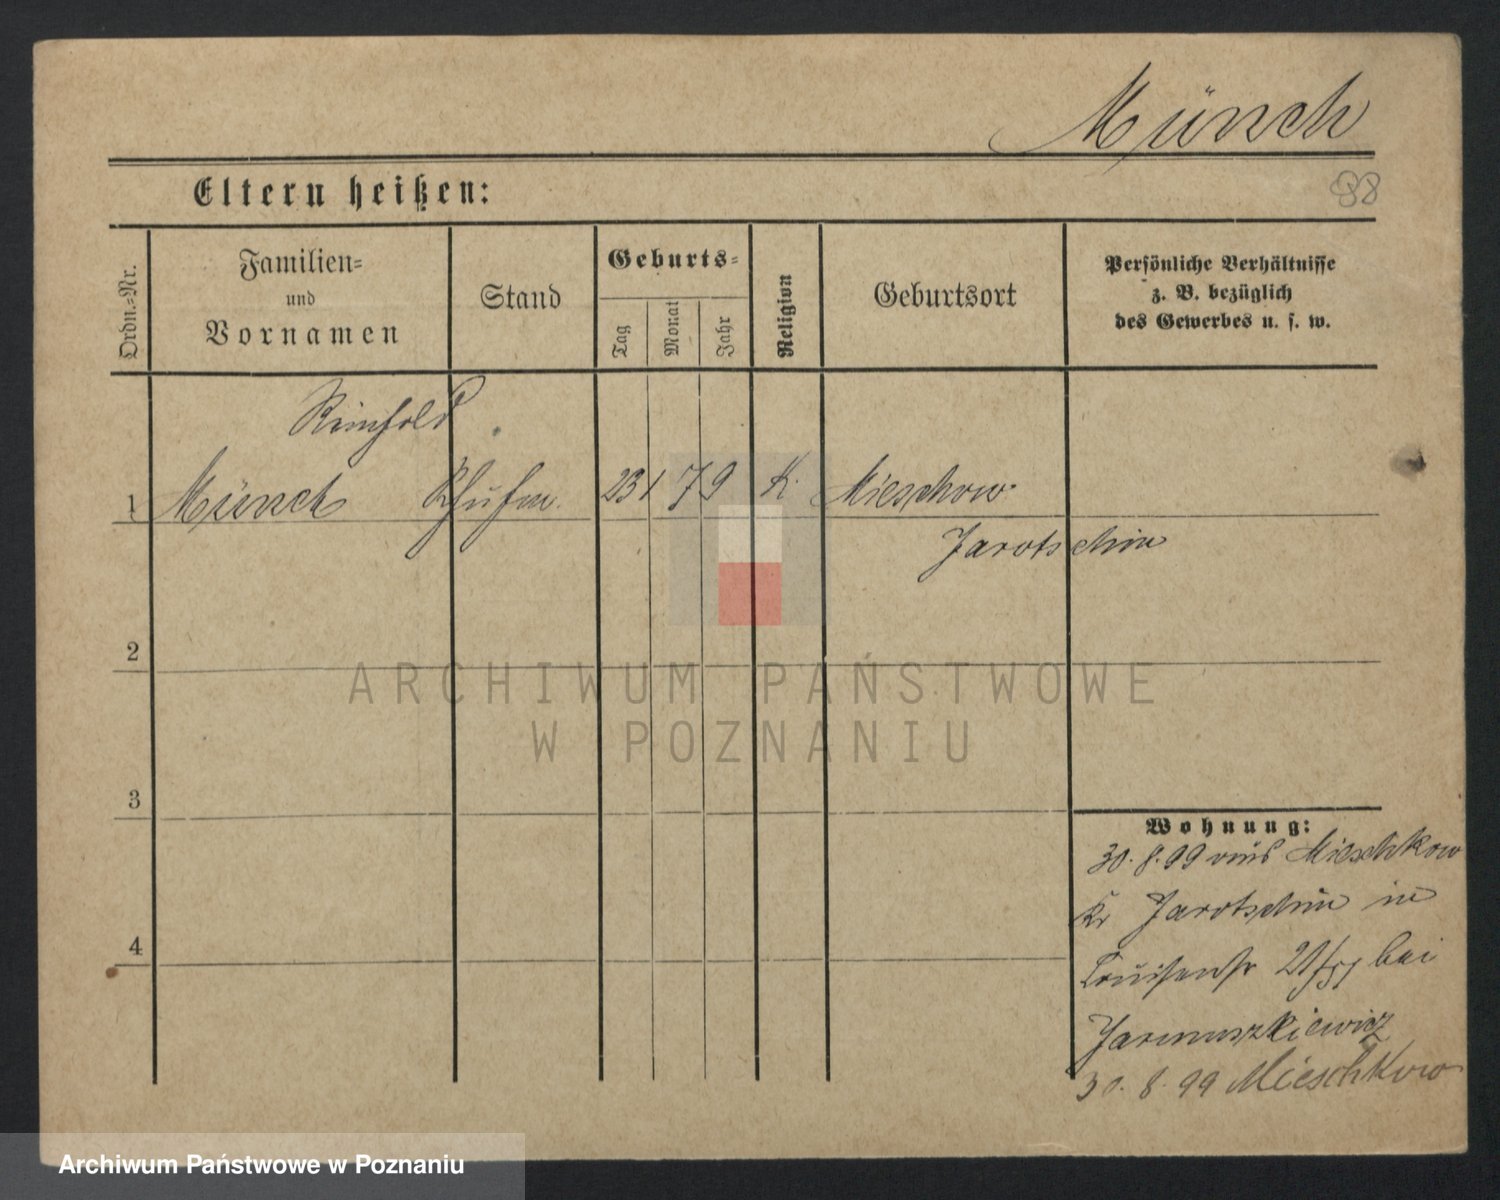 Münch
88
Eltern heißen:
Ordn.-Nr.
Familien-
und
Vornamen
Stand
Geburts-
Tag
Monat
Jahr
Religion
Geburtsort
Persönliche Verhältnisse
z. B. bezüglich
des Gewerbes u. s. w.
Reinhold
1 Münch 23 1 79 K. Mieschkow
Jarotschin
2
3
4
Wohnung:
30. 8. 99 aus Mieschkow
Kr Jarotschin in
Louisenstr bei
Jarmuszkiewicz
30. 8. 99 Mieschkow
ARCHIWUM PAŃSTWOWE
W POZNANIU
Archiwum Państwowe w Poznaniu